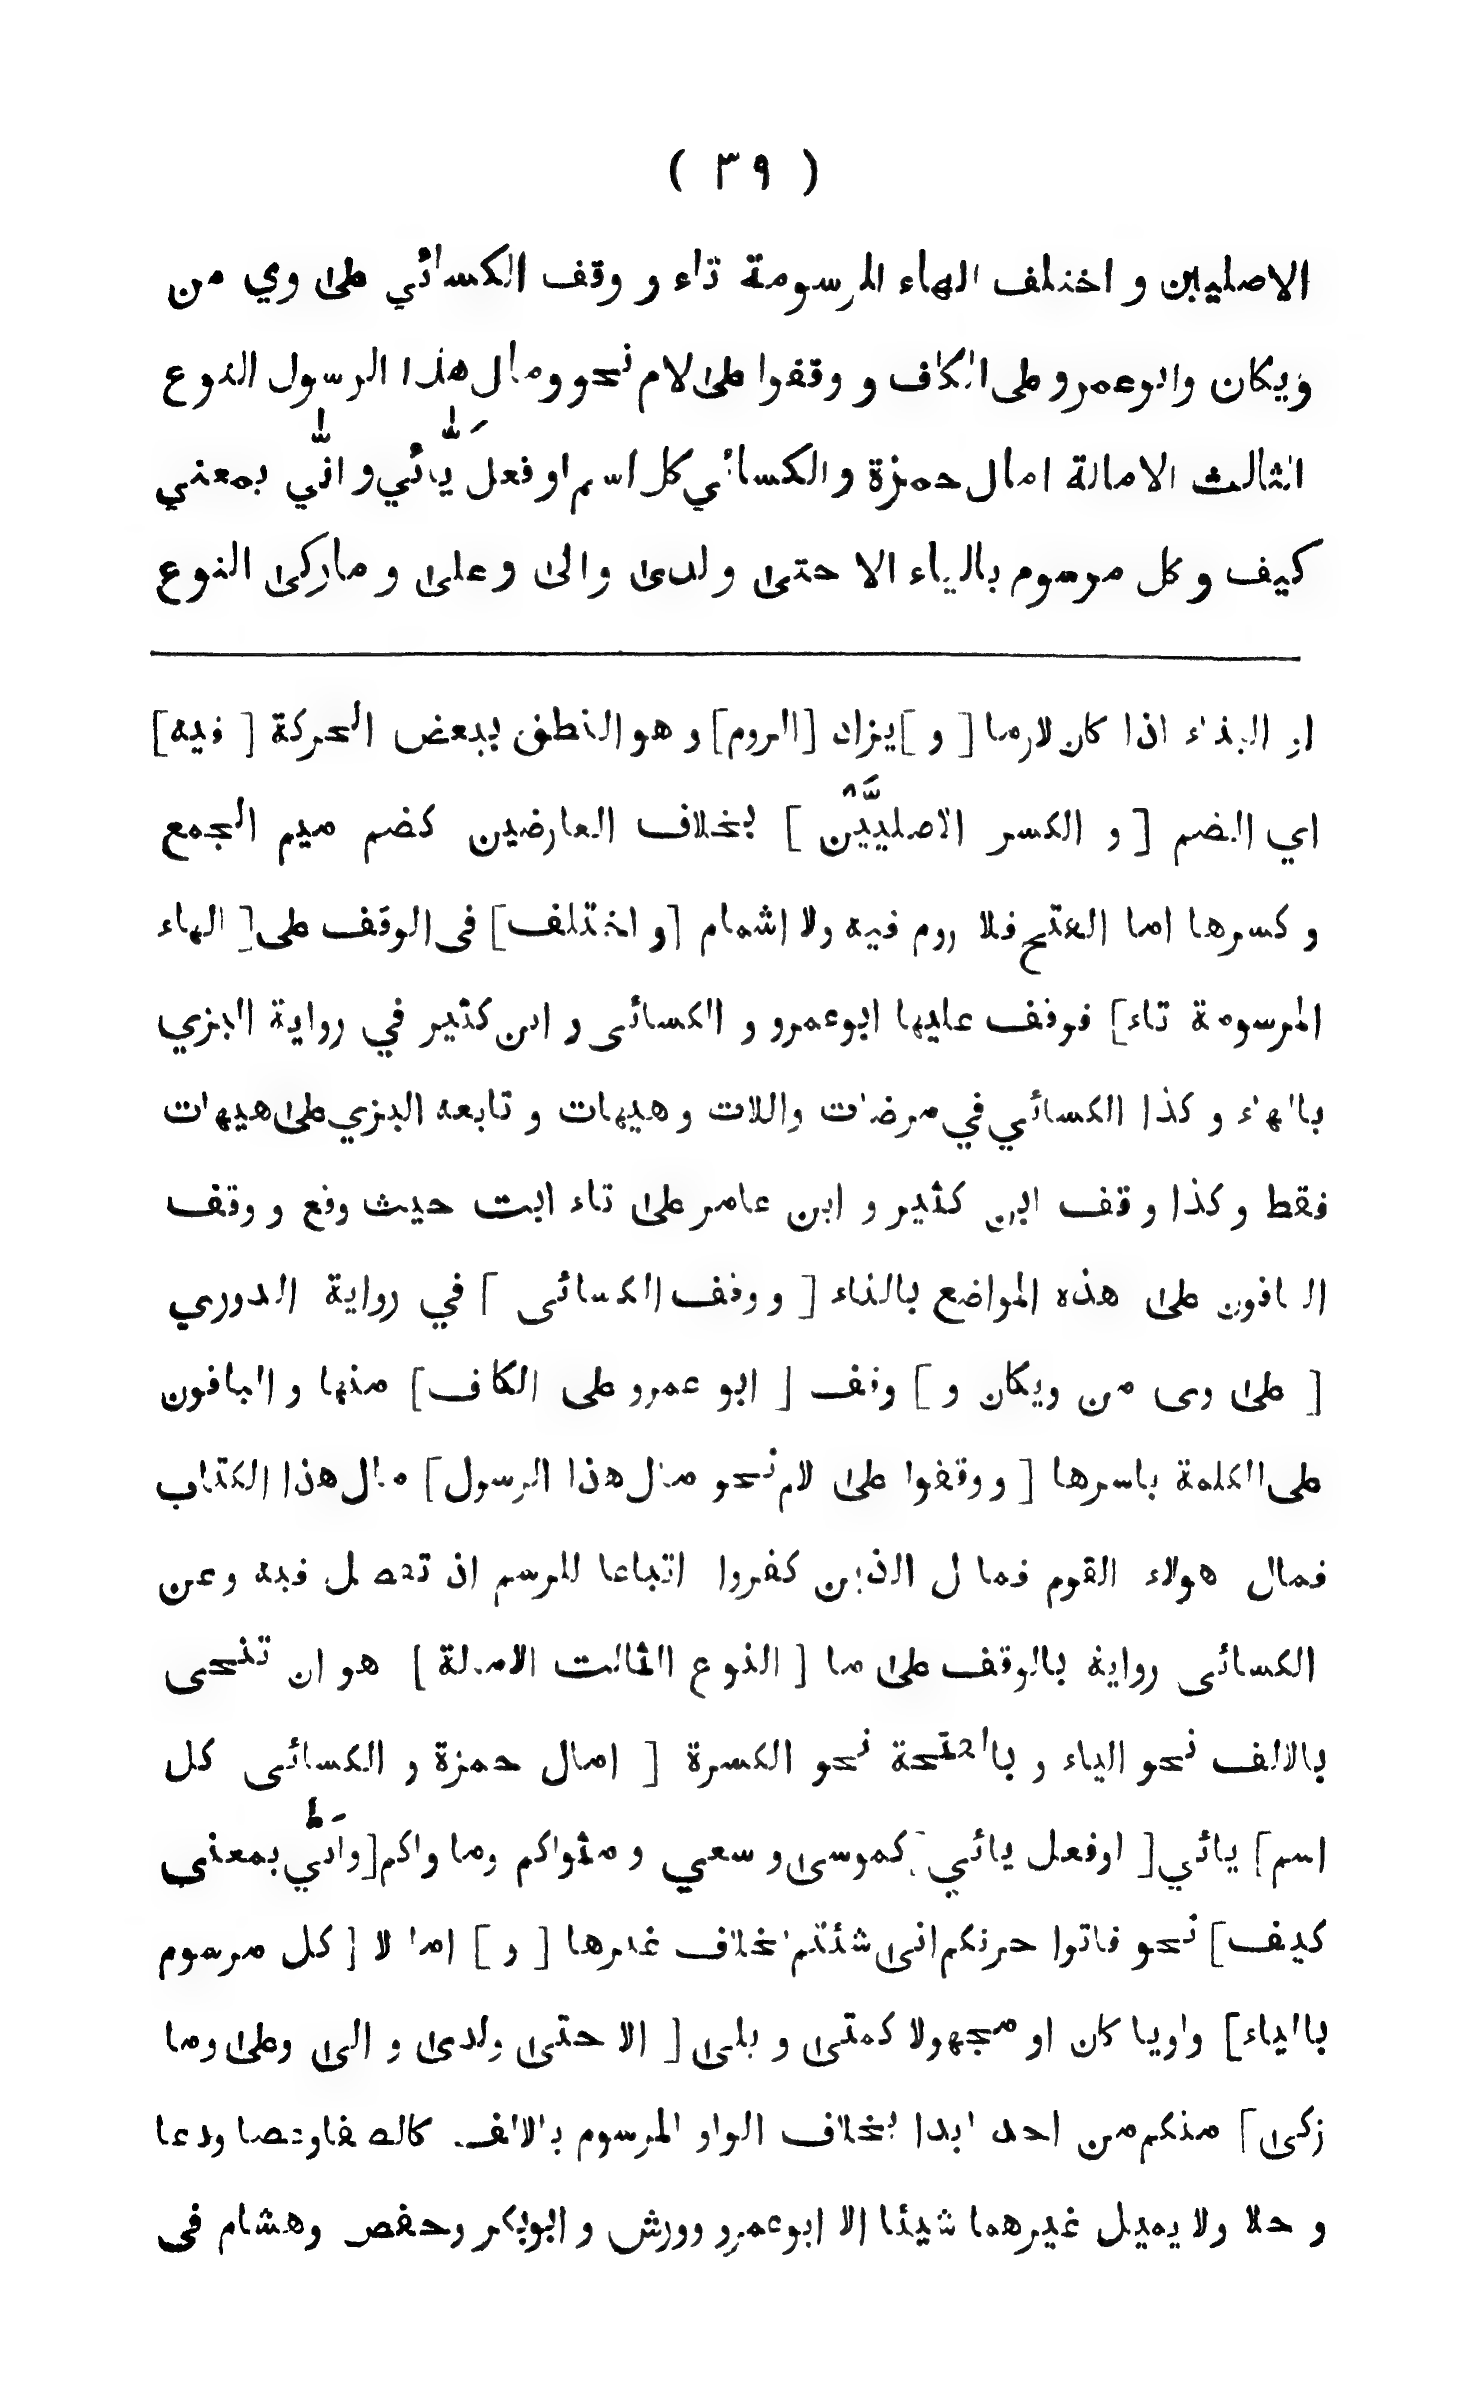 ( ٣٩ )
الاصليين و اختلف الهاء المرسومة تاء و وقف الكسائي على وي من
ويكان وابوعمرو على الكاف و وقفوا على لام نحو ومال هذا الرسول النوع
الثالث الامالة امال حمزة والكسائي كل اسم او فعل يائي و انّي بمعني
كيف وكل مرسوم بالياء الا حتى ولدى والى وعلى و مازكى النوع
او البناء اذا كان لازما [ و ] يزاد [الروم] و هو النطق ببعض الحركة [ فيه]
اي الضم [ و الكسر الاصليّين ] بخلاف العارضين كضم ميم الجمع
و كسرها اما الفتح فلا روم فيه ولا اشمام [و اختلف] فى الوقف على[ الهاء
المرسومة تاء] فوقف عليها ابوعمرو و الكسائى و ابن كثير في رواية البزي
بالهاء و كذا الكسائي في مرضات واللات و هيهات و تابعه البزي على هيهات
فقط و كذا وقف ابن كثير و ابن عامر على تاء ابت حيث وقع و وقف
الباقون على هذه المواضع بالتاء [ و وقف الكسائى ] في رواية الدوري
[ على وى من ويكان و ] وقف [ ابو عمرو على الكاف] منها و الباقون
على الكلمة باسرها [ و وقفوا على لام نحو مال هذا الرسول] مال هذا الكتاب
فمال هولاء القوم فمال الذين كفروا اتباعا للرسم اذ تفصل فيه وعن
الكسائى رواية بالوقف على ما [ النوع الثالث الامالة ] هو ان تنحى
بالالف نحو الياء و بالفتحة نحو الكسرة [ امال حمزة و الكسائى كل
اسم] يائي[ اوفعل يائي] كموسى و سعي و مثواكم وما واكم[وانّي بمعنى
كيف] نحو فاتوا حرثكم انى شئتم بخلاف غيرها [ و ] امالا [ كل مرسوم
بالياء] واويا كان او مجهولا كمتى و بلى [ الا حتى ولدى و الى وعلى وما
زكى] منكم من احد ابدا بخلاف الواو المرسوم بالالف كالصفا وعصا ودعا
و خلا ولا يميل غيرهما شيئا الا ابوعمرو وورش و ابوبكر وحفص وهشام فى